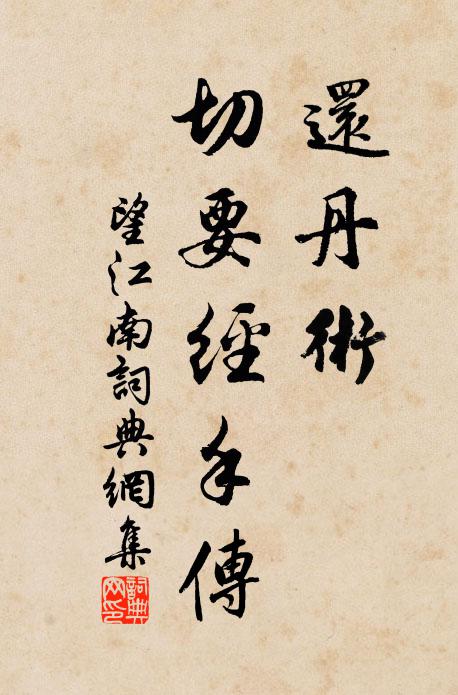 還丹術
切要經手傳
望江南詞典網集
詞典
网印